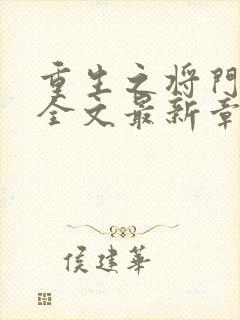 重生之将門
全文最新章
侯建華